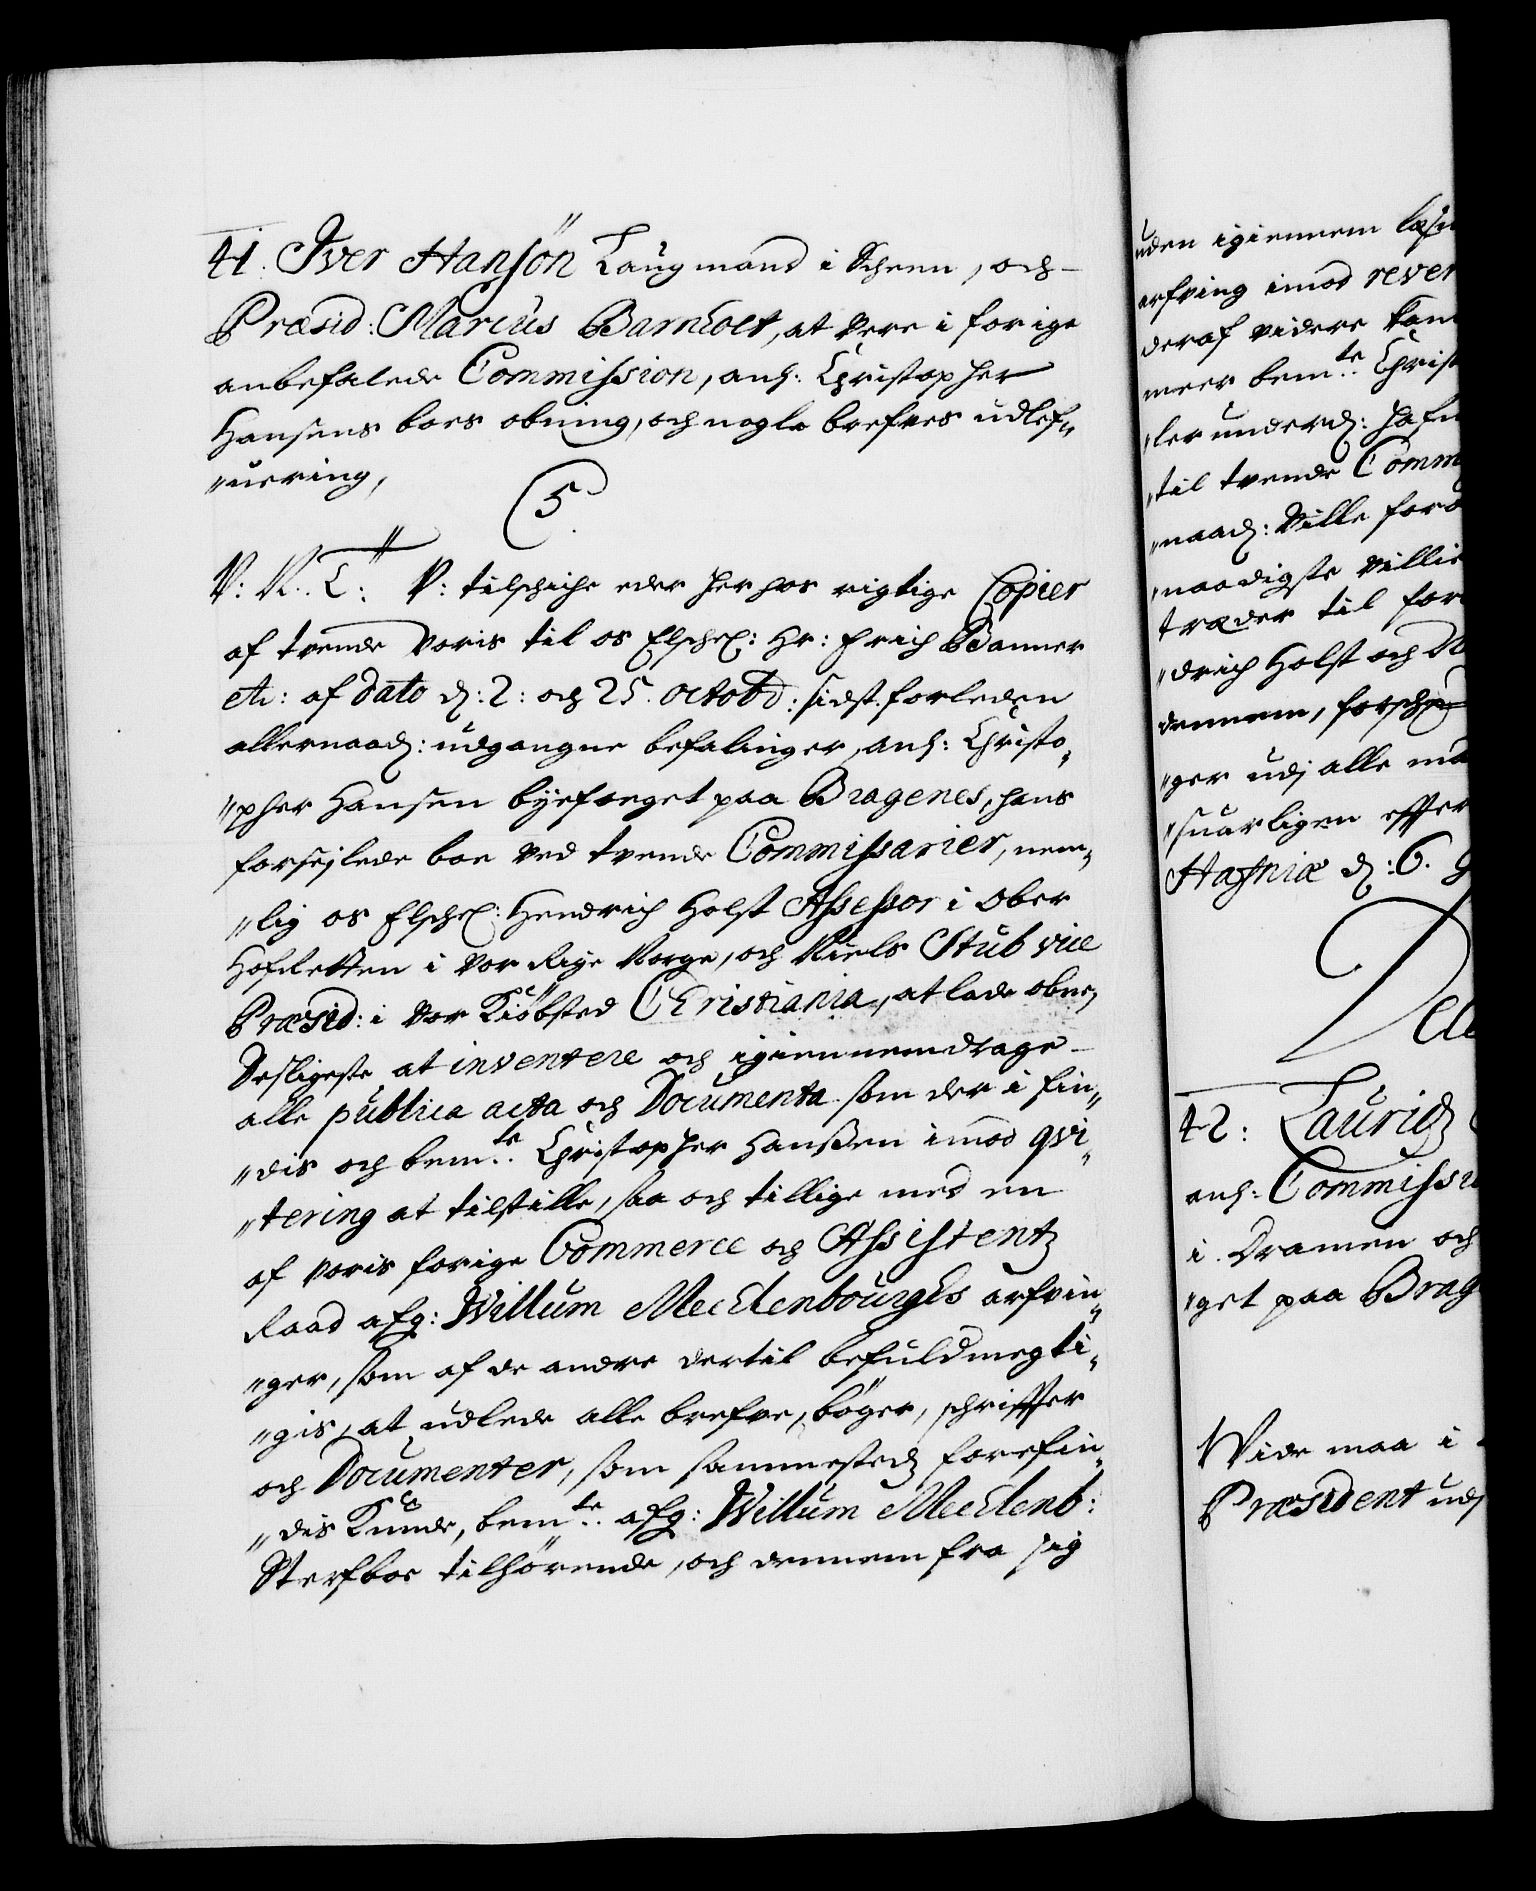 41. Iver Hansön Laugmand i Scheen, och
Præsid: Marcus Barnholt, at vere i forige
anbefalede Commission, anl: Christopher
Hansens boes obning, och nogle brefves udlef„
„uering,
C5.
V: V. T: V: tilschiche eder herhos rigtige Copier
af tvende voris til os Elschel: Hr: Erich Banner
etc: af Dato d: 2: och 25. octobr: sidst forleden
allernaad: udgangne befalinger, anl: Christo„
„pher Hansen byefoeget paa Bragenes, hans
forseglede boe ved tvende Commissarier, nem„
„lig os Elschel: Hendrich Holst Assessor i Ober
Hofretten i vor Rige Norge, och Niels Stub vice
Præsid: i vor Kiöbsted Christiania, at lade obne,
Desligeste at inventere och igiennemdrage
alle publica acta och Documenta som der i fin„
„dis och bem.te Christopher Hanssen imod qvi„
„tering at tilstille, saa och tillige med en
af voris forige Commerce och Assistentz
Raad afg: Willum Mechlenbourghs arfvin„
„ger, som af de andre dertil befuldmegti„
„gis, at udlede alle brefve, böger, schriffter
och Documenter, som sammestedz forefin„
„dis Kunde, bem.te afg: Willum Mechlenb:
Sterfboe tilhörende, och dennem fra sig
uden igiennem læsn
arfving imod rever
deraf videre kan
meer bem.te Christ
„ler underd: hafu
„til tvende Comm
„naad: Ville foro
„naadigste villie
træder til for
„drich Holst och N
dennem, forsch
„ger udj alle ma
„suarligen effter
Hafniæ d: 6.
42: Lauridz
anl: Commissi
i Dramen och
„get paa Brag
Vide maa i
Præsident udj